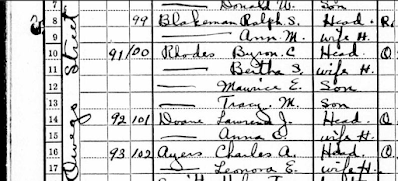 7 — Donald W. Son
8 99 Blakeman Ralph S. Head R
9 — Ann M. wife H.
10 91 100 Rhodes Byron C Head O
11 — Bertha S. wife H.
12 — Maurice E. Son
13 — Tracy M. Son
14 92 101 Doane Laurens J. Head O
15 — Anna C. wife H.
16 93 102 Ayers Charles A. Head O
17 — Leonora E. wife H.
Owego Street